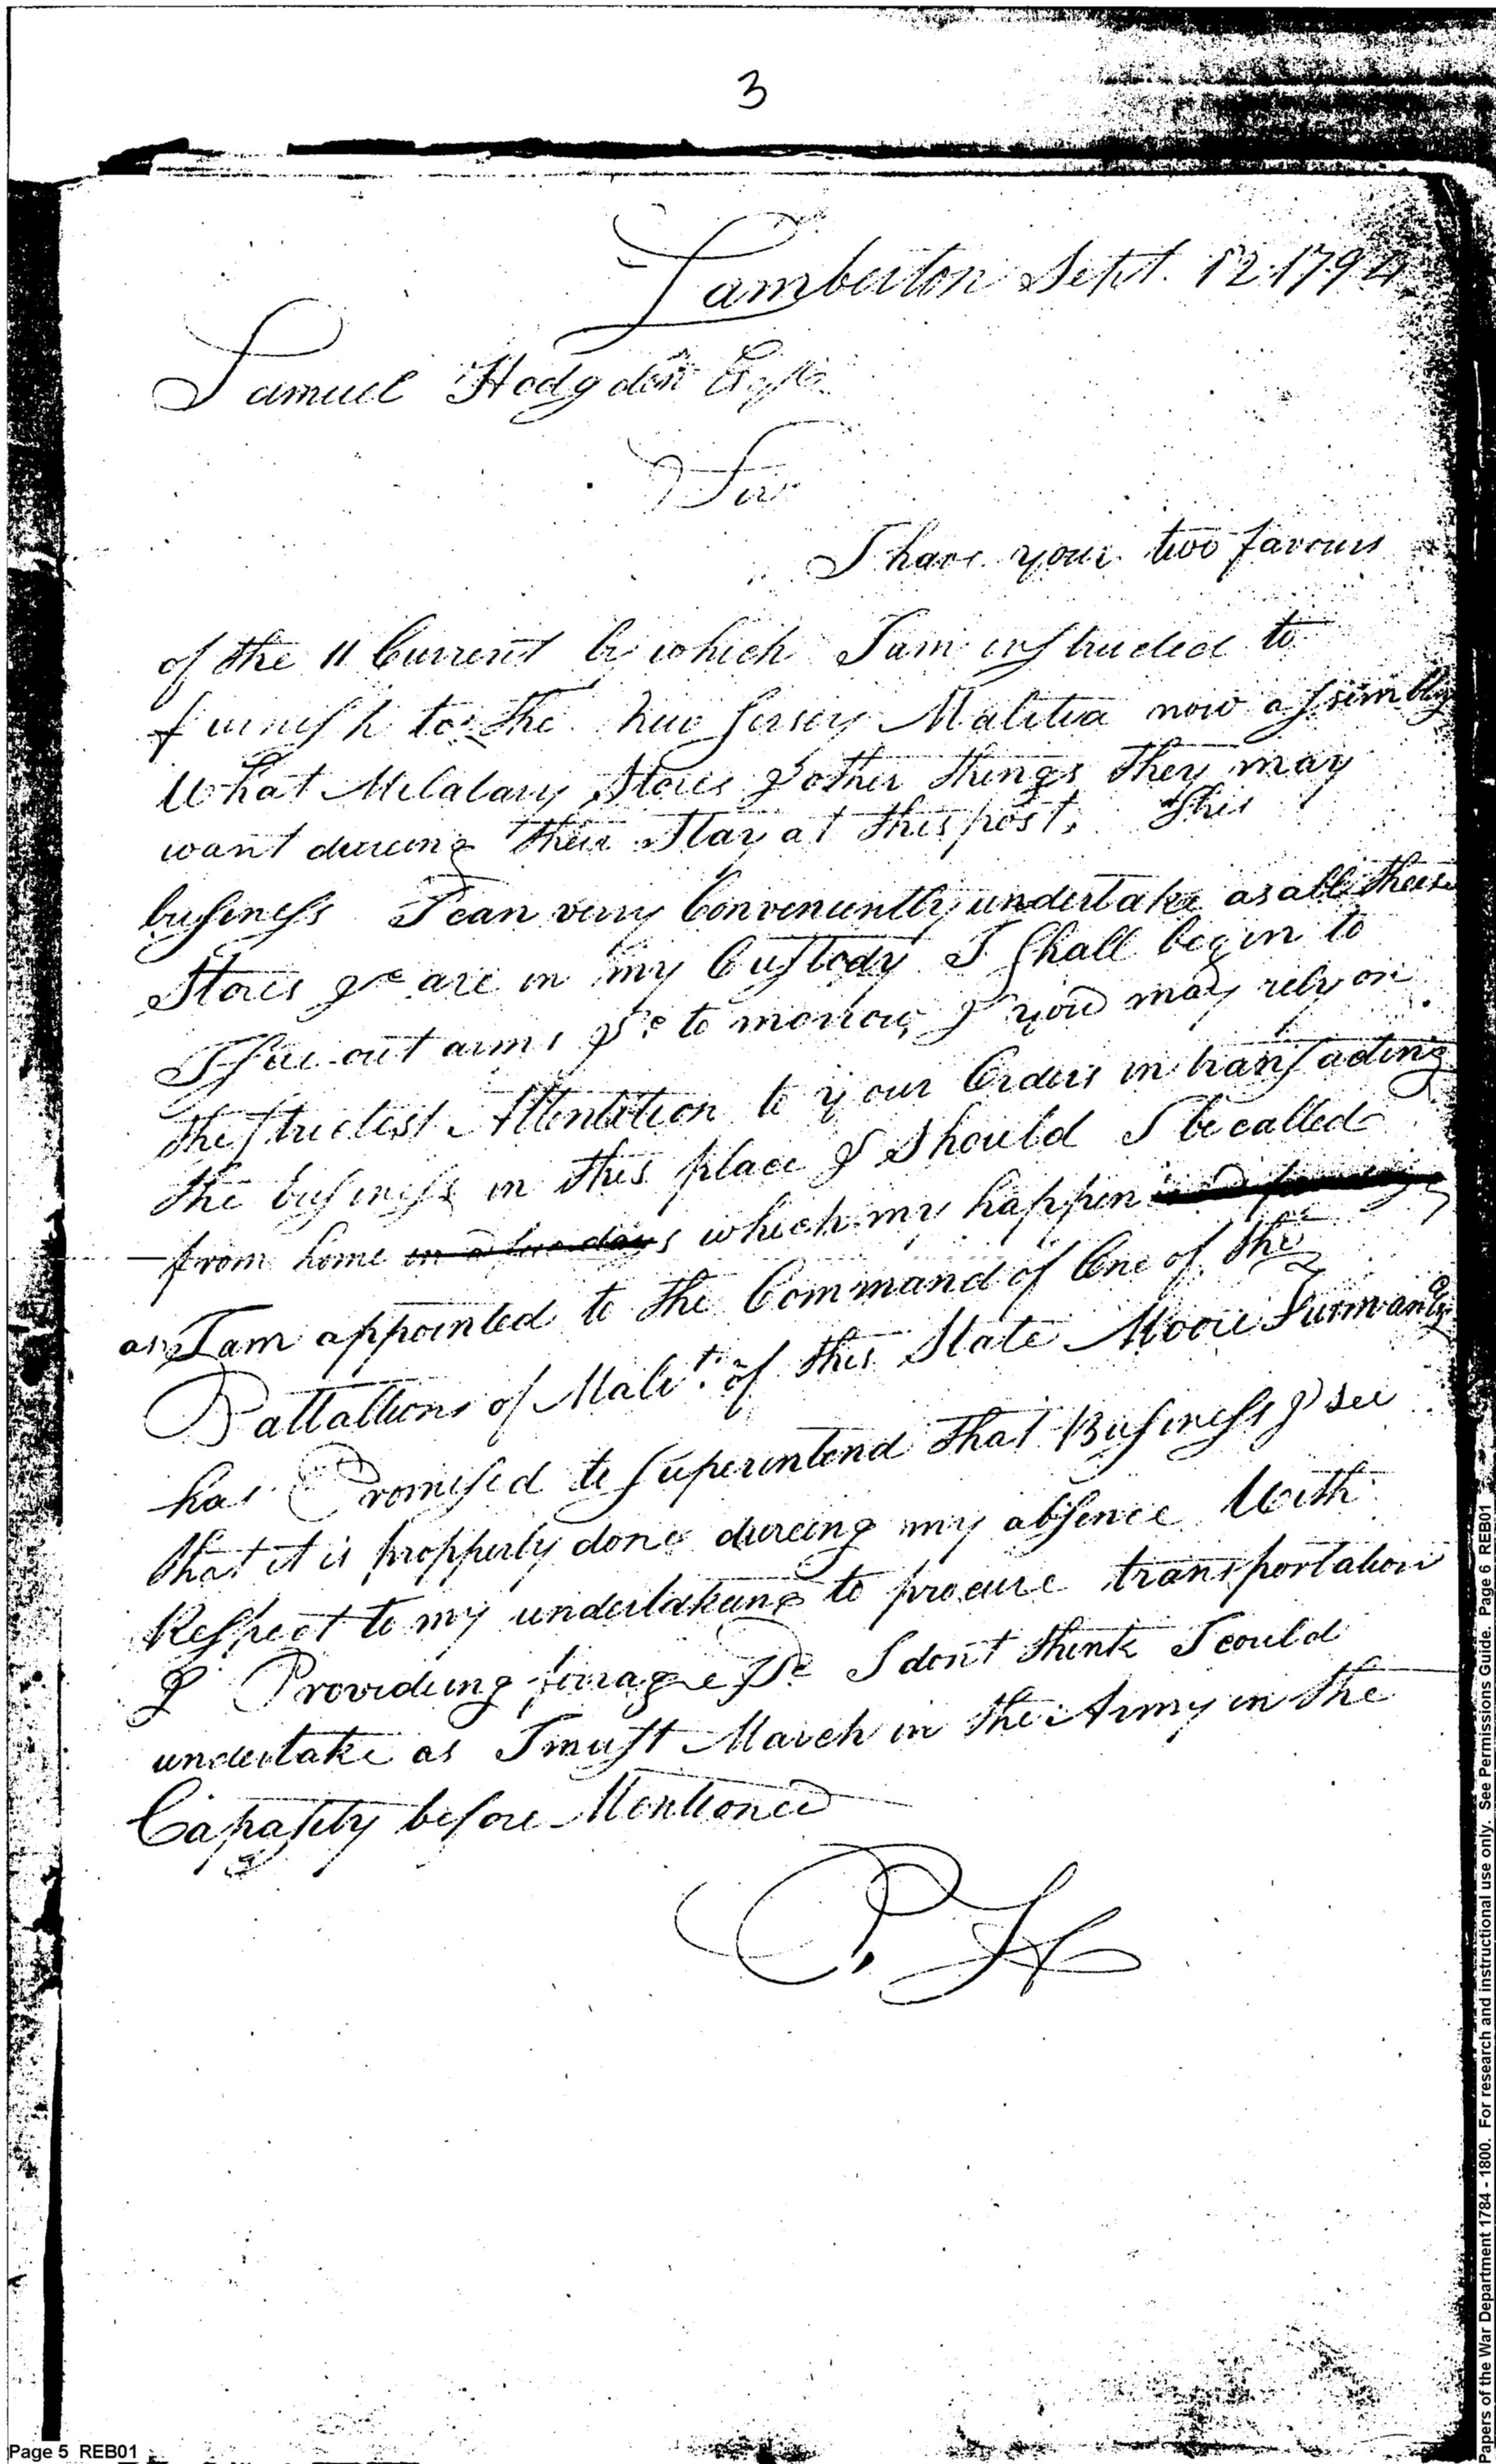 3
Lamberton Sept. 12 1794
Samuel Hodgdon Esqr.
Sir
I have your two favours
of the 11 Current by which I am instructed to
furnish to the New Jersey Malitia now assembly
What Milalary Stores & other things they may
want dureing their Stay at this post, This
business I can very Conveniently undertake as all these
Stores &c are in my Custody I Shall begin to
Issue out arms &c to morrow, & you may rely on
the strictest Attentition to your Orders in transacting
the business in this place & Should I be called
from home in a few days which my happen
as I am appointed to the Command of One of the
Battallions of Malit. of this State Moore Furman Esqr
has Promised to Superintend that Business & see
that it is propperly done dureing my absence With
Respect to my undertakeing to procure transportation
& Provideing forrage &c I dont think I could
undertake as I must March in the Army in the
Capasity before Mentioned
P. H
Page 5 REB01
Papers of the War Department 1784 - 1800. For research and instructional use only. See Permissions Guide. Page 6 REB01